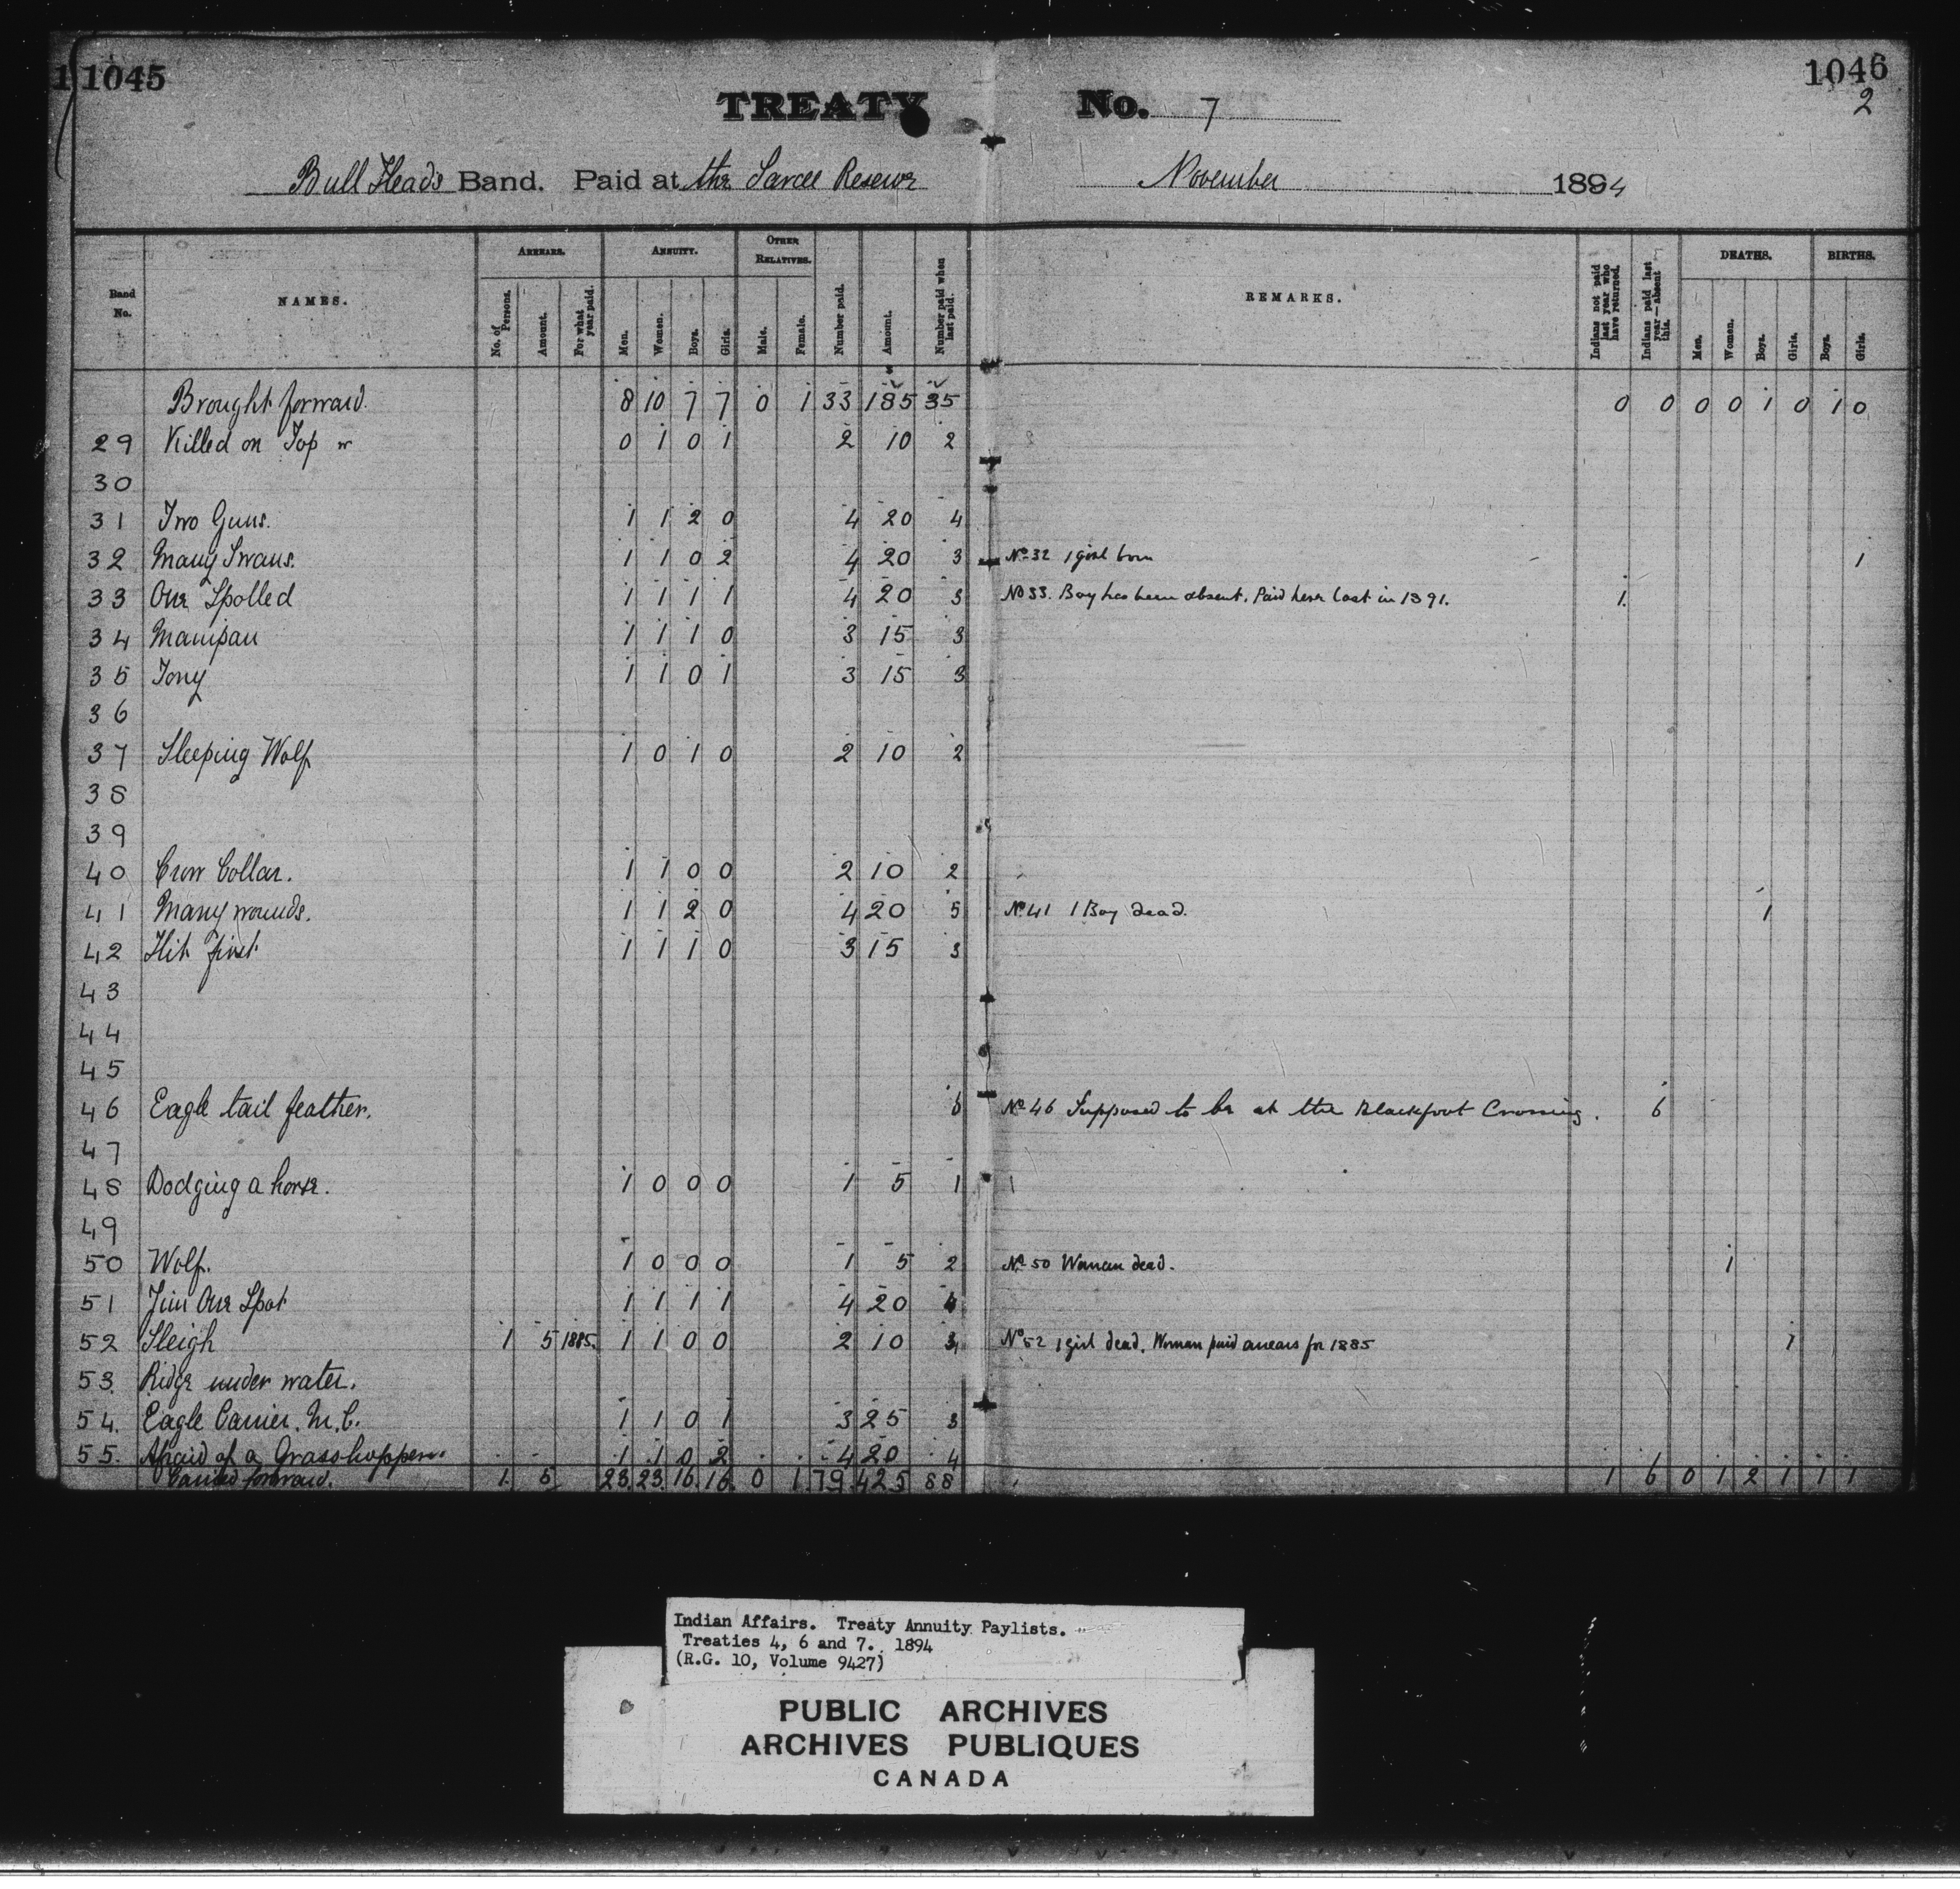 1 1045
1046
2
TREATY No. 7
Bull Heads Band. Paid at the Sarcee Reserve November 1894
Band No.
NAMES.
ARREARS.
No. of Persons.
Amount.
For what year paid.
ANNUITY.
Men.
Women.
Boys.
Girls.
OTHER RELATIVES.
Male.
Female.
Number paid.
Amount.
Number paid when last paid.
REMARKS.
Indians not paid last year who have returned.
Indians paid last year—absent this.
DEATHS.
Men.
Women.
Boys.
Girls.
BIRTHS.
Boys.
Girls.
Brought forward. 8 10 7 7 0 1 33 185 35 0 0 0 0 1 0 1 0
29 Killed on Top w 0 1 0 1 2 10 2
30
31 Two Guns. 1 1 2 0 4 20 4
32 Many Swans. 1 1 0 2 4 20 3 No 32 1 girl born 1
33 One Spotted 1 1 1 1 4 20 3 No 33. Boy has been absent. Paid here last in 1891. 1.
34 Manipau 1 1 1 0 3 15 3
35 Tony 1 1 0 1 3 15 3
36
37 Sleeping Wolf 1 0 1 0 2 10 2
38
39
40 Crow Collar. 1 1 0 0 2 10 2
41 Many wounds. 1 1 2 0 4 20 5 No 41 1 Boy dead. 1
42 Hit first 1 1 1 0 3 15 3
43
44
45
46 Eagle tail feather. 6 No 46 Supposed to be at the Blackfoot Crossing. 6
47
48 Dodging a horse. 1 0 0 0 1 5 1
49
50 Wolf. 1 0 0 0 1 5 2 No 50 Woman dead. 1
51 Jim One Spot 1 1 1 1 4 20 4
52 Sleigh 1 5 1885. 1 1 0 0 2 10 3 No 52 1 girl dead. Woman paid arrears for 1885 1
53. Ridge under water.
54. Eagle Carrier. M.C. 1 1 0 1 3 25 3
55. Afraid of a Grasshopper. 1 1 0 2 4 20 4
Carried forward. 1. 5 23 23 16 16 0 1 79 425 88 1 6 0 1 2 1 1 1
Indian Affairs. Treaty Annuity Paylists.
Treaties 4, 6 and 7. 1894
(R.G. 10, Volume 9427)
PUBLIC ARCHIVES
ARCHIVES PUBLIQUES
CANADA